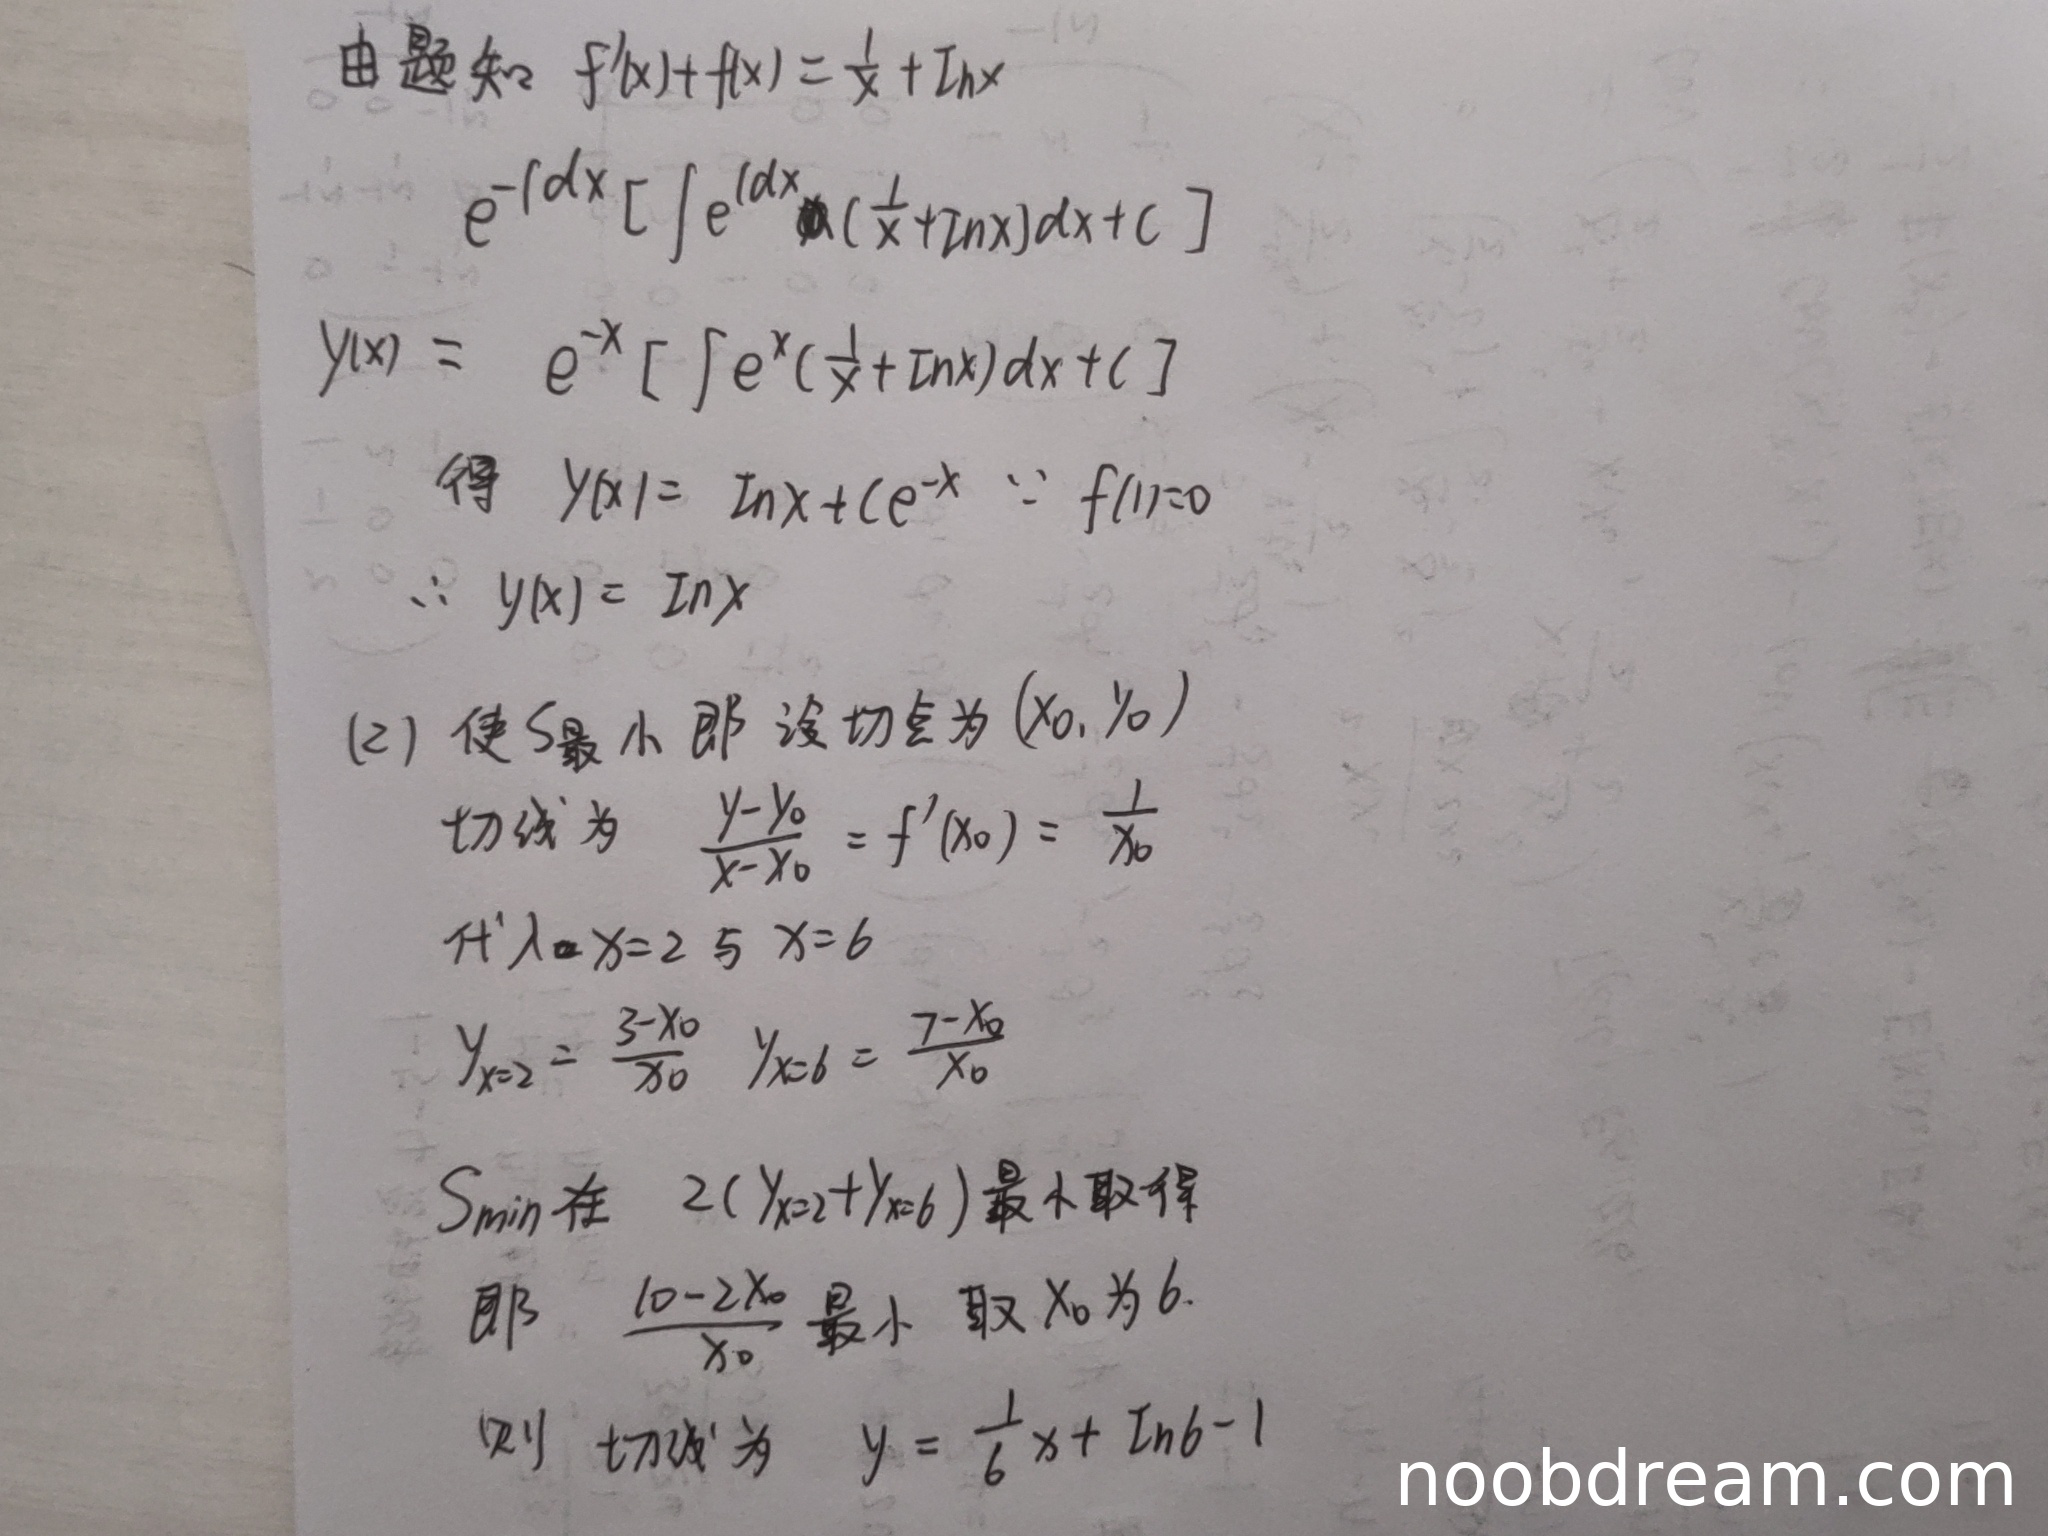 由题知 f'(x)+f(x)=1/x+Inx
e^{-∫dx}[∫e^{∫dx}(1/x+Inx)dx+C]
y(x)= e^{-x}[∫e^x(1/x+Inx)dx+C]
得 y(x)= Inx+Ce^{-x} ∵ f(1)=0
∴ y(x)= Inx
(2) 使S最小 即 设切点为(x₀,y₀)
切线为 (y-y₀)/(x-x₀)=f'(x₀)=1/x₀
代入x=2与x=6
y_{x=2}=(3-x₀)/x₀ y_{x=6}=(7-x₀)/x₀
Smin在 2(y_{x=2}+y_{x=6})最小取得
即 (10-2x₀)/x₀ 最小 取x₀为6.
则 切线为 y=1/6x+In6-1
noobdream.com